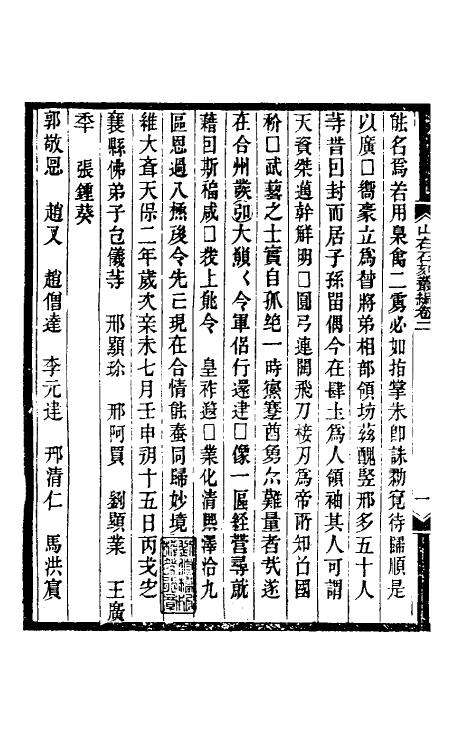 能名爲若用臬禽二虜必如指掌朱卽誅勦寃待歸順是
以廣□衙豪立爲督將弟相部領坊茲醜竪邢多五十人
䓁昔回封而居子孫留偶今在肆土爲人領袖其人可謂
天資桀邁幹鮮明□圓弓連閞飛刀棱刃爲帝所知㠯國
枌□武藝之士實自孤絶一時瘝蹇酋勇尒難量者㢤遂
在合州䕺㘦大嶺く令軍侣行還建□像一區經營尋就
藉回斯福咸□㧞上能令　皇祚遐□業化清熙澤洽九
區恩過八㮣㱝令先亡現在合情能蚕同歸妙境
維大斉天保二年歲次辛未七月壬申朔十五日丙戌㱐
襄縣佛弟子㐌儀䓁　邢顯珎　邢阿買　劉顯業　王廣
秊　張鍾葵
郭敬恩　趙又　趙僧達　李元達　邢清仁　馬洪賓
山右石刻叢編卷二
一